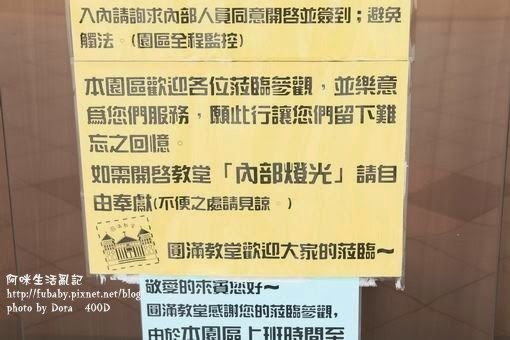 入內請詢求內部人員同意開啓並簽到；避免
觸法。(園區全程監控)
本園區歡迎各位蒞臨參觀，並樂意
為您們服務，願此行讓您們留下難
忘之回憶。
如需開啓教堂「內部燈光」請自
由奉獻(不便之處請見諒。)
圓滿教堂
圓滿教堂歡迎大家的蒞臨～
敬愛的來賓您好～
圓滿教堂感謝您的蒞臨參觀，
由於本園區上班時間至
阿咪生活亂記
http://fubaby.pixnet.net/blog
photo by Dora 400D